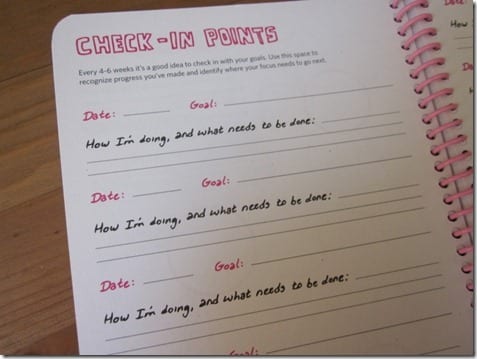 CHECK-IN POINTS
Every 4-6 weeks it's a good idea to check in with your goals. Use this space to
recognize progress you've made and identify where your focus needs to go next.
Date: Goal:
How I'm doing, and what needs to be done:
Date: Goal:
How I'm doing, and what needs to be done:
Date: Goal:
How I'm doing, and what needs to be done:
Goal: